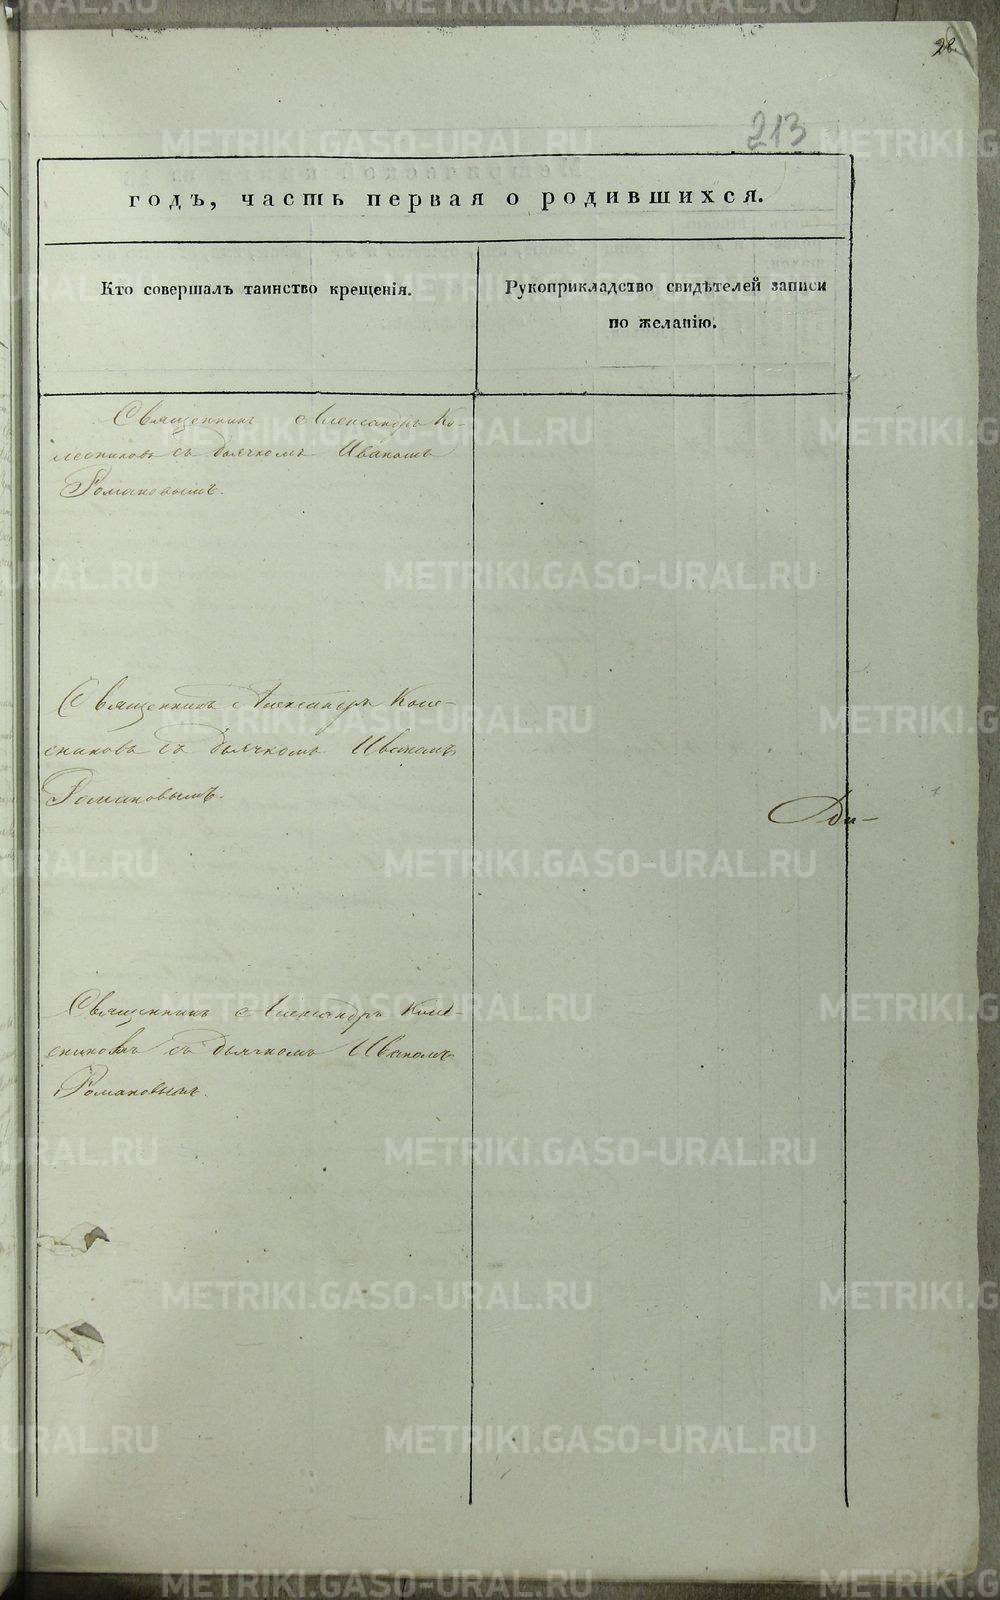 28
213
годъ, часть первая о родившихся.
Кто совершалъ таинство крещенія.
Рукоприкладство свидѣтелей записи
по желанію.
Священникъ Александръ Ко-
лесниковъ съ дьячкомъ Иваномъ
Романовымъ.
Священникъ Александръ Коле-
сниковъ съ дьячкомъ Иваномъ
Романовымъ.
Ди-
Священникъ Александръ Коле-
сниковъ съ дьячкомъ Иваномъ
Романовымъ.
METRIKI.GASO-URAL.RU